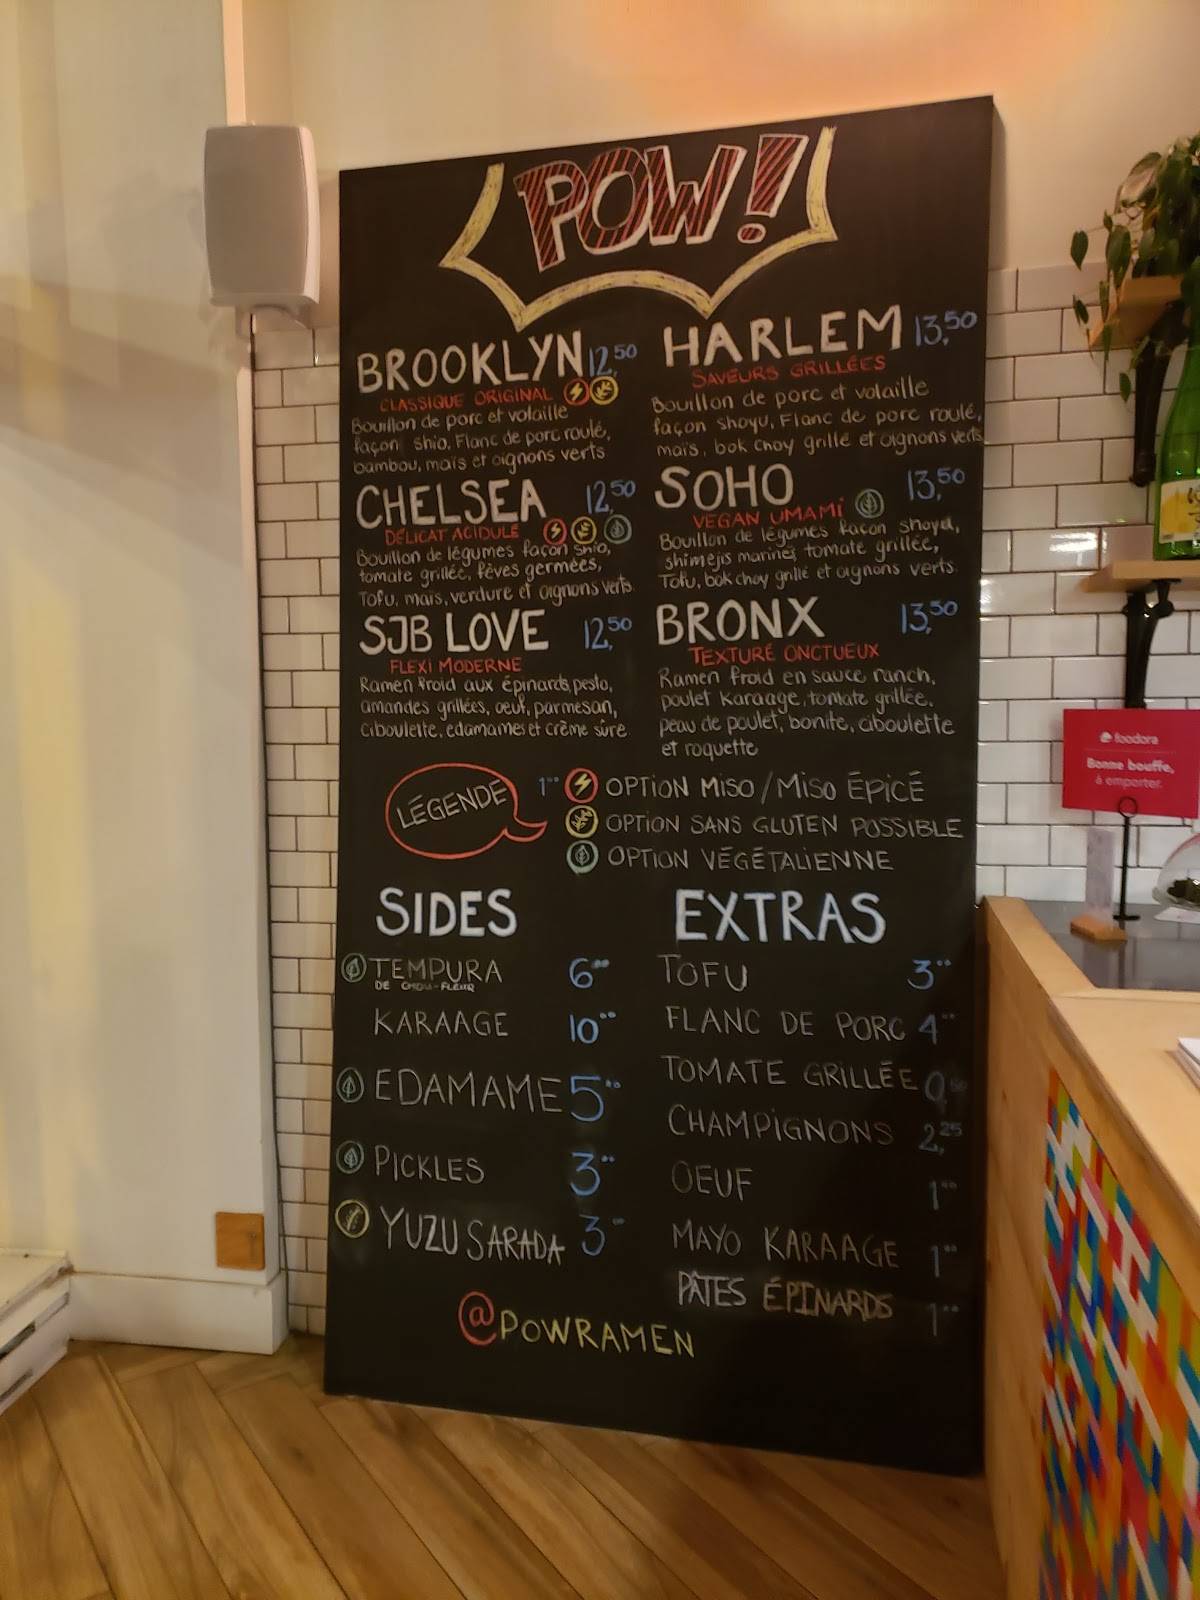 POW!
BROOKLYN 12,50
CLASSIQUE ORIGINAL
Bouillon de porc et volaille
façon shio, Flanc de porc roulé,
bambou, maïs et oignons verts
CHELSEA 12,50
DÉLICAT ACIDULÉ
Bouillon de légumes façon shio,
tomate grillée, fèves germées,
Tofu, maïs, verdure et oignons verts
SJB LOVE 12,50
FLEXI MODERNE
Ramen froid aux épinards, pesto,
amandes grillées, oeuf, parmesan,
ciboulette, edamames et crème sûre
HARLEM 13,50
SAVEURS GRILLÉES
Bouillon de porc et volaille
façon shoyu, Flanc de porc roulé,
maïs, bok choy grillé et oignons verts
SOHO 13,50
VEGAN UMAMI
Bouillon de légumes façon shoyu,
shimejis marinés tomate grillée,
Tofu, bok choy grillé et oignons verts
BRONX 13,50
TEXTURÉ ONCTUEUX
Ramen froid en sauce ranch,
poulet Karaage, tomate grillée,
peau de poulet, bonite, ciboulette
et roquette
LÉGENDE
1°° OPTION MISO / MISO ÉPICÉ
OPTION SANS GLUTEN POSSIBLE
OPTION VÉGÉTALIENNE
SIDES
TEMPURA 6°°
DE CHOU-FLEUR
KARAAGE 10°°
EDAMAME 5°°
PICKLES 3°°
YUZU SARADA 3°°
EXTRAS
TOFU 3°°
FLANC DE PORC 4°°
TOMATE GRILLÉE
CHAMPIGNONS 2,25
OEUF 1°°
MAYO KARAAGE 1°°
PÂTES ÉPINARDS 1°°
@POWRAMEN
foodora
Bonne bouffe,
à emporter.